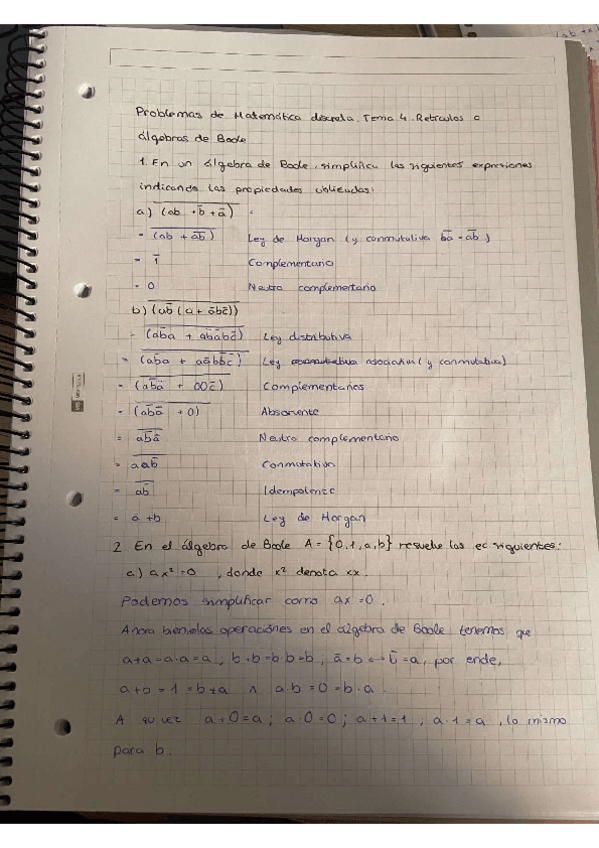 Problemas de Matemática discreta. Tema 4. Retículos o
álgebras de Boole
1. En un álgebra de Boole, simplifica las siguientes expresiones
indicando las propiedades utilizadas:
a) \overline{(ab + b̄ + ā)} =
= \overline{(ab + \overline{ab})} Ley de Morgan (y conmutativa \overline{ba} = \overline{ab})
= \overline{1} Complementario
= 0 Neutro complementario
b) \overline{(ab̄ (a + ābc̄))}
= \overline{(ab̄a + ab̄ābc̄)} Ley distributiva
= \overline{(ab̄a + aābb̄c̄)} Ley asociativa (y conmutativa)
= \overline{(ab̄a + 00c̄)} Complementarios
= \overline{(ab̄a + 0)} Absorvente
= \overline{ab̄a} Neutro complementario
= \overline{aab̄} Conmutativa
= \overline{ab̄} Idempotente
= ā + b Ley de Morgan
2 En el álgebra de Boole A = {0, 1, a, b} resuelve las ec siguientes:
a) ax² = 0 , donde x² denota xx.
Podemos simplificar como ax = 0.
Ahora bien, las operaciones en el álgebra de Boole tenemos que
a+a = a·a = a, b+b = b·b = b; ā = b ↔ b̄ = a, por ende,
a+b = 1 = b+a ∧ a·b = 0 = b·a.
A su vez a+0 = a; a·0 = 0; a+1 = 1, a·1 = a, lo mismo
para b.